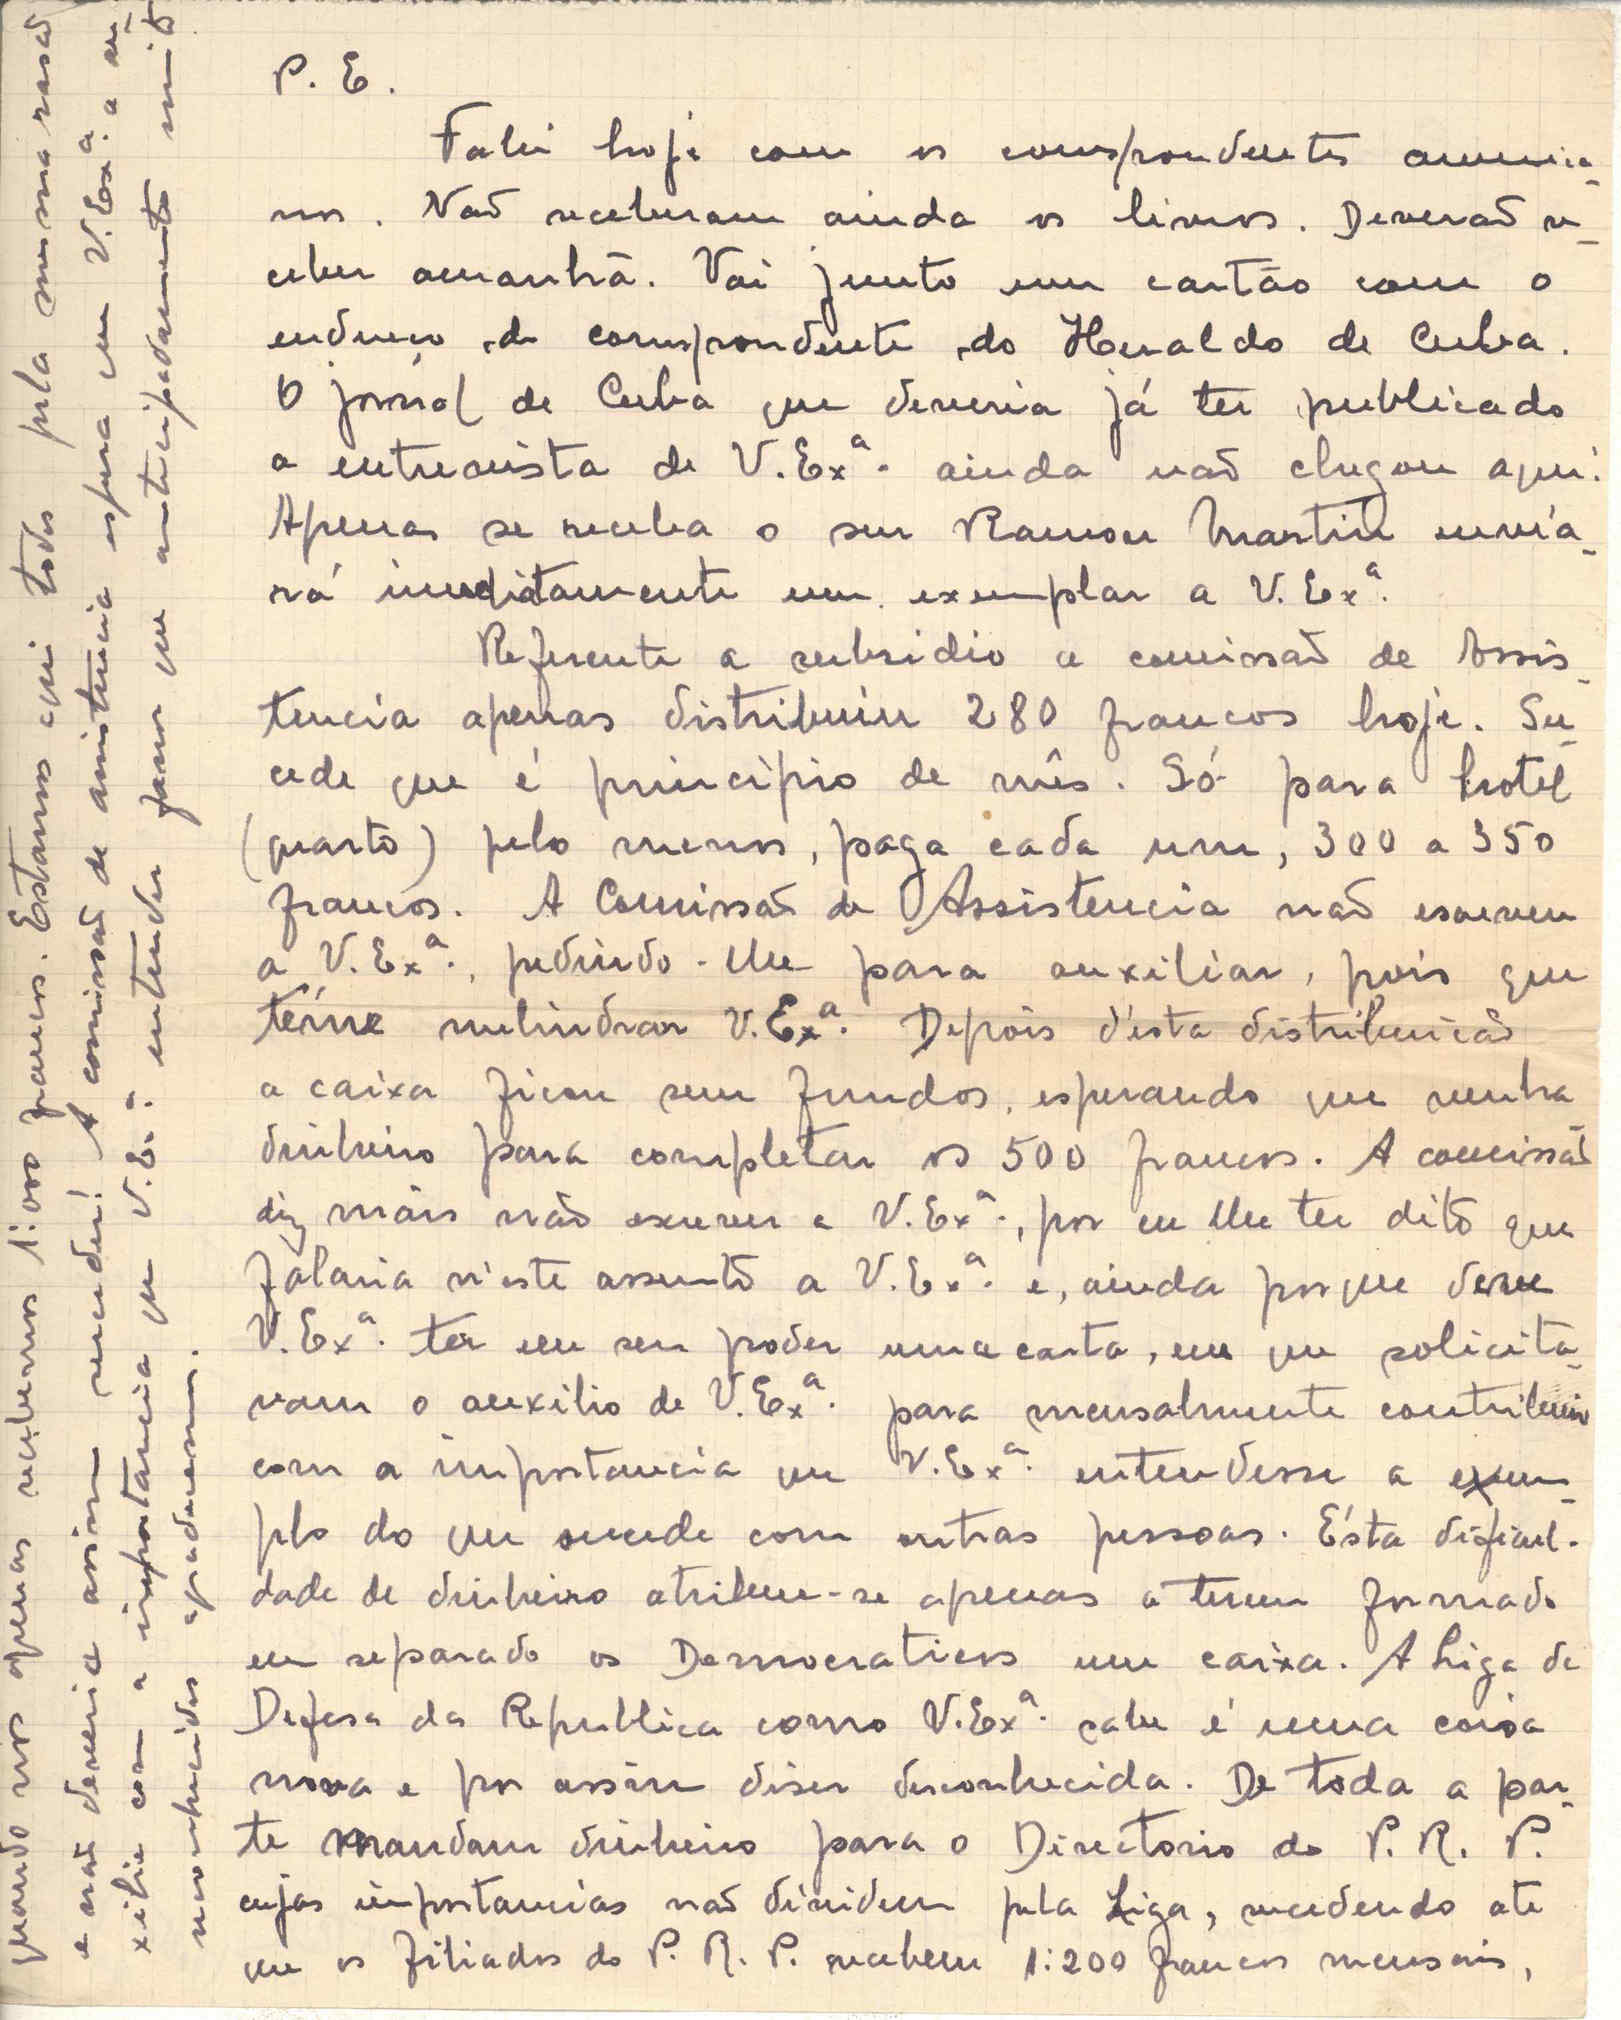 P. E.
Falei hoje com os correspondentes america-
nos. Naõ receberam ainda os livros. Deveraõ re-
ceber amanhã. Vai junto um cartão com o
endereço do correspondente do Heraldo de Cuba.
O jornal de Cuba que deveria já ter publicado
a entrevista de V. Exª. ainda naõ chegou aqui.
Apenas se receba o snr Ramon Martin envia-
rá imediatamente um exemplar a V. Exª.
Referente a subsidio a comissaõ de Assis-
tencia apenas distribuiu 280 francos hoje. Su-
cede que é principio de mês. Só para hotel
(quarto) pelo menos, paga cada um, 300 a 350
francos. A Comissaõ de Assistencia naõ escreveu
a V. Exª., pedindo-lhe para auxiliar, pois que
téme melindrar V. Exª. Depois d'esta distribuicaõ
a caixa ficou sem fundos, esperando que venha
dinheiro para completar os 500 francos. A comissaõ
diz mais não escrever a V. Exª., por eu lhe ter dito que
falaria n'este assunto a V. Exª. e, ainda porque deve
V. Exª. ter em seu poder uma carta, em que solicita-
vam o auxilio de V. Exª. para mensalmente contribuir
com a importancia que V. Exª. entendesse a exem-
plo do que sucede com outras pessoas. Ésta dificul-
dade de dinheiro atribue-se apenas a terem formado
em separado os Democraticos uma caixa. A Liga de
Defesa da Republica como V. Exª. sabe é uma coisa
nova e por assim diser desconhecida. De toda a par-
te mandam dinheiro para o Directorio do P. R. P.
cujas importancias naõ dividem pela Liga, sucedendo ate
que os filiados do P. R. P. recebem 1:200 francos mensais,
quando nós apenas recebemos 1:000 francos. Estamos aqui todos pela mesma rasaõ
e naõ deveria assim suceder! A comissaõ de assistencia espera que V. Exª. a au-
xilie com a importancia que V. Exª. entender favor que antecipadamente muito
reconhecidos agradecem.